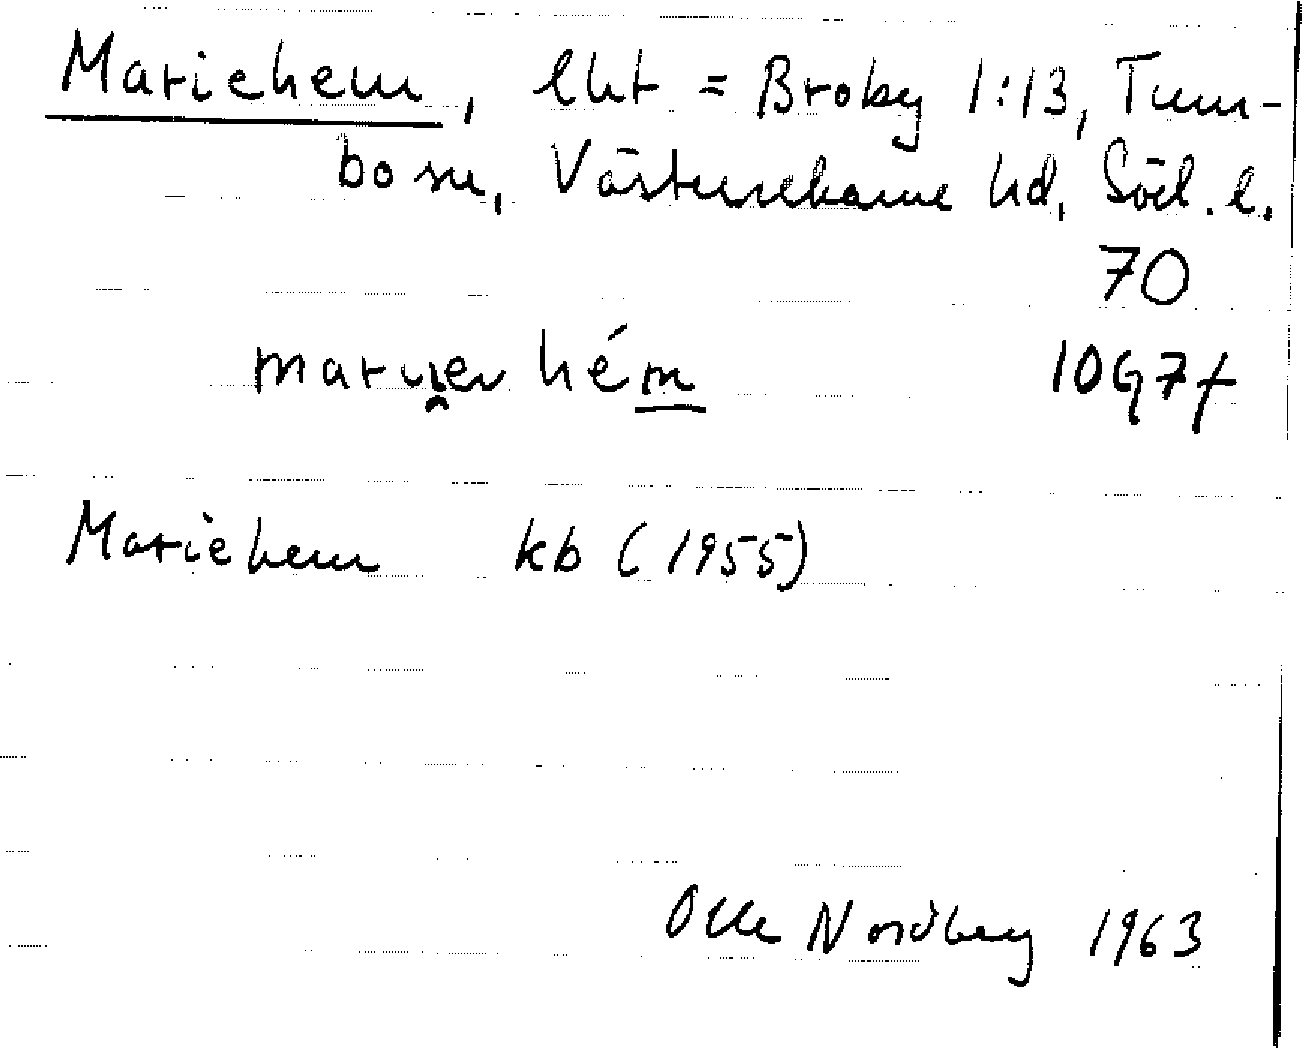 Mariehem, lht = Broby 1:13, Tum-
bo sn, Västerrekarne hd, Söd. l.
70
10G7f
Mariehem kb (1955)
Olle Nordberg 1963